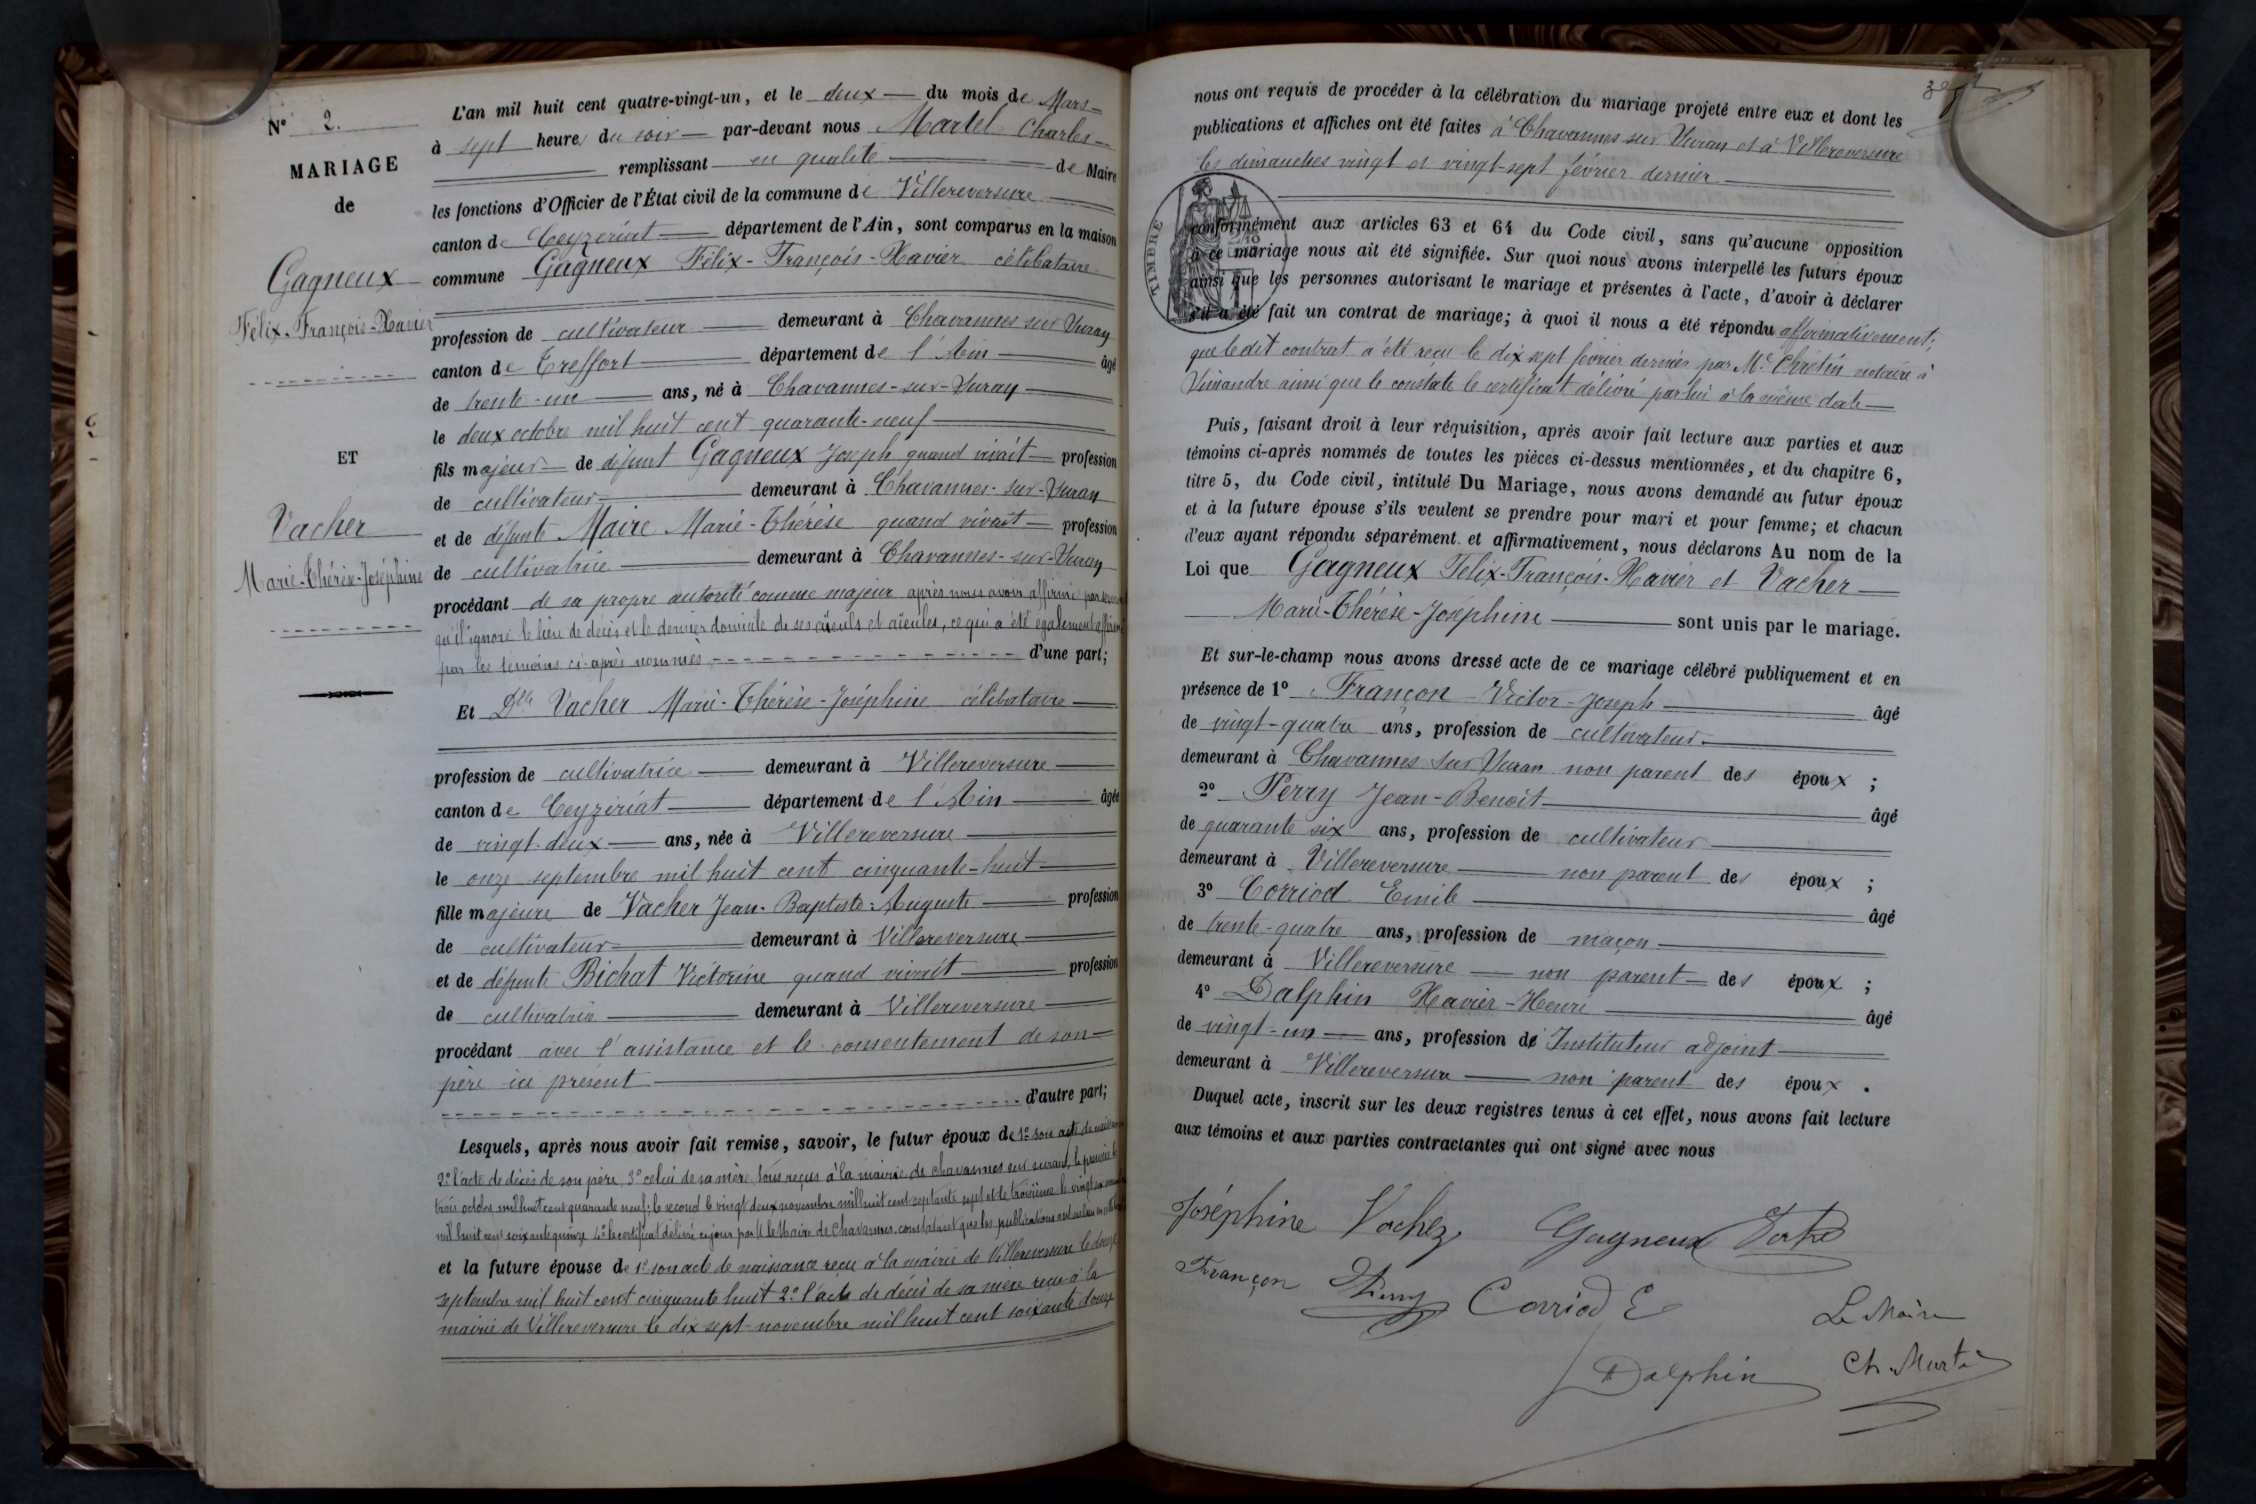 N° 2.
MARIAGE
de
Gagneux
Félix-François-Xavier
ET
Vacher
Marie-Thérèse-Joséphine
L'an mil huit cent quatre-vingt-un, et le deux du mois de Mars
à sept heures du soir par-devant nous Martel Charles
remplissant en qualité de Maire
les fonctions d'Officier de l'État civil de la commune de Villereversure
canton de Ceyzériat département de l'Ain, sont comparus en la maison
commune Gagneux Félix-François-Xavier célibataire
profession de cultivateur demeurant à Chavannes sur Suran
canton de Treffort département de l'Ain âgé
de trente-un ans, né à Chavannes-sur-Suran
le deux octobre mil huit cent quarante-neuf
fils majeur de défunt Gagneux Joseph quand vivait profession
de cultivateur demeurant à Chavannes-sur-Suran
et de défunte Maire Marie-Thérèse quand vivait profession
de cultivatrice demeurant à Chavannes-sur-Suran
procédant de sa propre autorité comme majeur après nous avoir affirmé par serment
qu'il ignore le lieu de décès et le dernier domicile de ses aïeuls et aïeules, ce qui a été également affirmé
par les témoins ci-après nommés d'une part;
Et Dlle Vacher Marie-Thérèse-Joséphine célibataire
profession de cultivatrice demeurant à Villereversure
canton de Ceyzériat département de l'Ain âgée
de vingt-deux ans, née à Villereversure
le onze septembre mil huit cent cinquante-huit
fille majeure de Vacher Jean-Baptiste-Auguste profession
de cultivateur demeurant à Villereversure
et de défunte Bichat Victorine quand vivait profession
de cultivatrice demeurant à Villereversure
procédant avec l'assistance et le consentement de son
père ici présent
d'autre part;
Lesquels, après nous avoir fait remise, savoir, le futur époux de 1° son acte de naissance
2° l'acte de décès de son père, 3° celui de sa mère, tous reçus à la mairie de Chavannes sur Suran, le premier le
trois octobre mil huit cent quarante neuf; le second le vingt deux novembre mil huit cent septante sept et le troisième le vingt
mil huit cent soixante quinze 4° le certificat délivré ce jour par le Maire de Chavannes, constatant que les publications ont eu lieu
et la future épouse de 1° son acte de naissance reçu à la mairie de Villereversure le douze
septembre mil huit cent cinquante huit 2° l'acte de décès de sa mère reçu à la
mairie de Villereversure le dix sept novembre mil huit cent soixante douze
nous ont requis de procéder à la célébration du mariage projeté entre eux et dont les
publications et affiches ont été faites à Chavannes sur Suran et à Villereversure
les dimanches vingt et vingt-sept février dernier
TIMBRE
conformément aux articles 63 et 64 du Code civil, sans qu'aucune opposition
à ce mariage nous ait été signifiée. Sur quoi nous avons interpellé les futurs époux
ainsi que les personnes autorisant le mariage et présentes à l'acte, d'avoir à déclarer
s'il a été fait un contrat de mariage; à quoi il nous a été répondu affirmativement;
que ledit contrat a été reçu le dix sept février dernier par Me Chrétin notaire à
Simandre ainsi que le constate le certificat délivré par lui à la même date
Puis, faisant droit à leur réquisition, après avoir fait lecture aux parties et aux
témoins ci-après nommés de toutes les pièces ci-dessus mentionnées, et du chapitre 6,
titre 5, du Code civil, intitulé Du Mariage, nous avons demandé au futur époux
et à la future épouse s'ils veulent se prendre pour mari et pour femme; et chacun
d'eux ayant répondu séparément et affirmativement, nous déclarons Au nom de la
Loi que Gagneux Félix-François-Xavier et Vacher
Marie-Thérèse-Joséphine sont unis par le mariage.
Et sur-le-champ nous avons dressé acte de ce mariage célébré publiquement et en
présence de 1° Françon Victor-Joseph âgé
de vingt-quatre ans, profession de cultivateur
demeurant à Chavannes sur Suran non parent des époux ;
2° Perry Jean-Benoît âgé
de quarante six ans, profession de cultivateur
demeurant à Villereversure non parent des époux ;
3° Corriod Emile âgé
de trente-quatre ans, profession de maçon
demeurant à Villereversure non parent des époux ;
4° Dalphin Xavier-Henri âgé
de vingt-un ans, profession de Instituteur adjoint
demeurant à Villereversure non parent des époux .
Duquel acte, inscrit sur les deux registres tenus à cet effet, nous avons fait lecture
aux témoins et aux parties contractantes qui ont signé avec nous
Joséphine Vacher Gagneux
Françon Perry Corriod E
Le Maire
Dalphin Ch. Martel